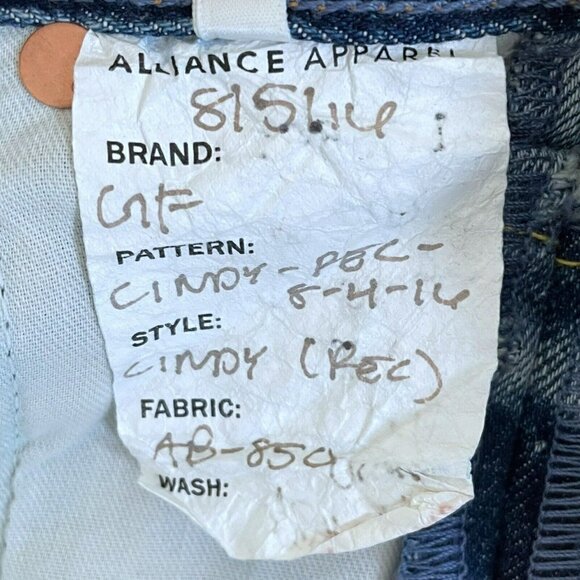 ALLIANCE APPAREL
8/5/16
BRAND:
GF
PATTERN:
CINDY-REC-
8-4-16
STYLE:
CINDY (REC)
FABRIC:
AB-850
WASH: